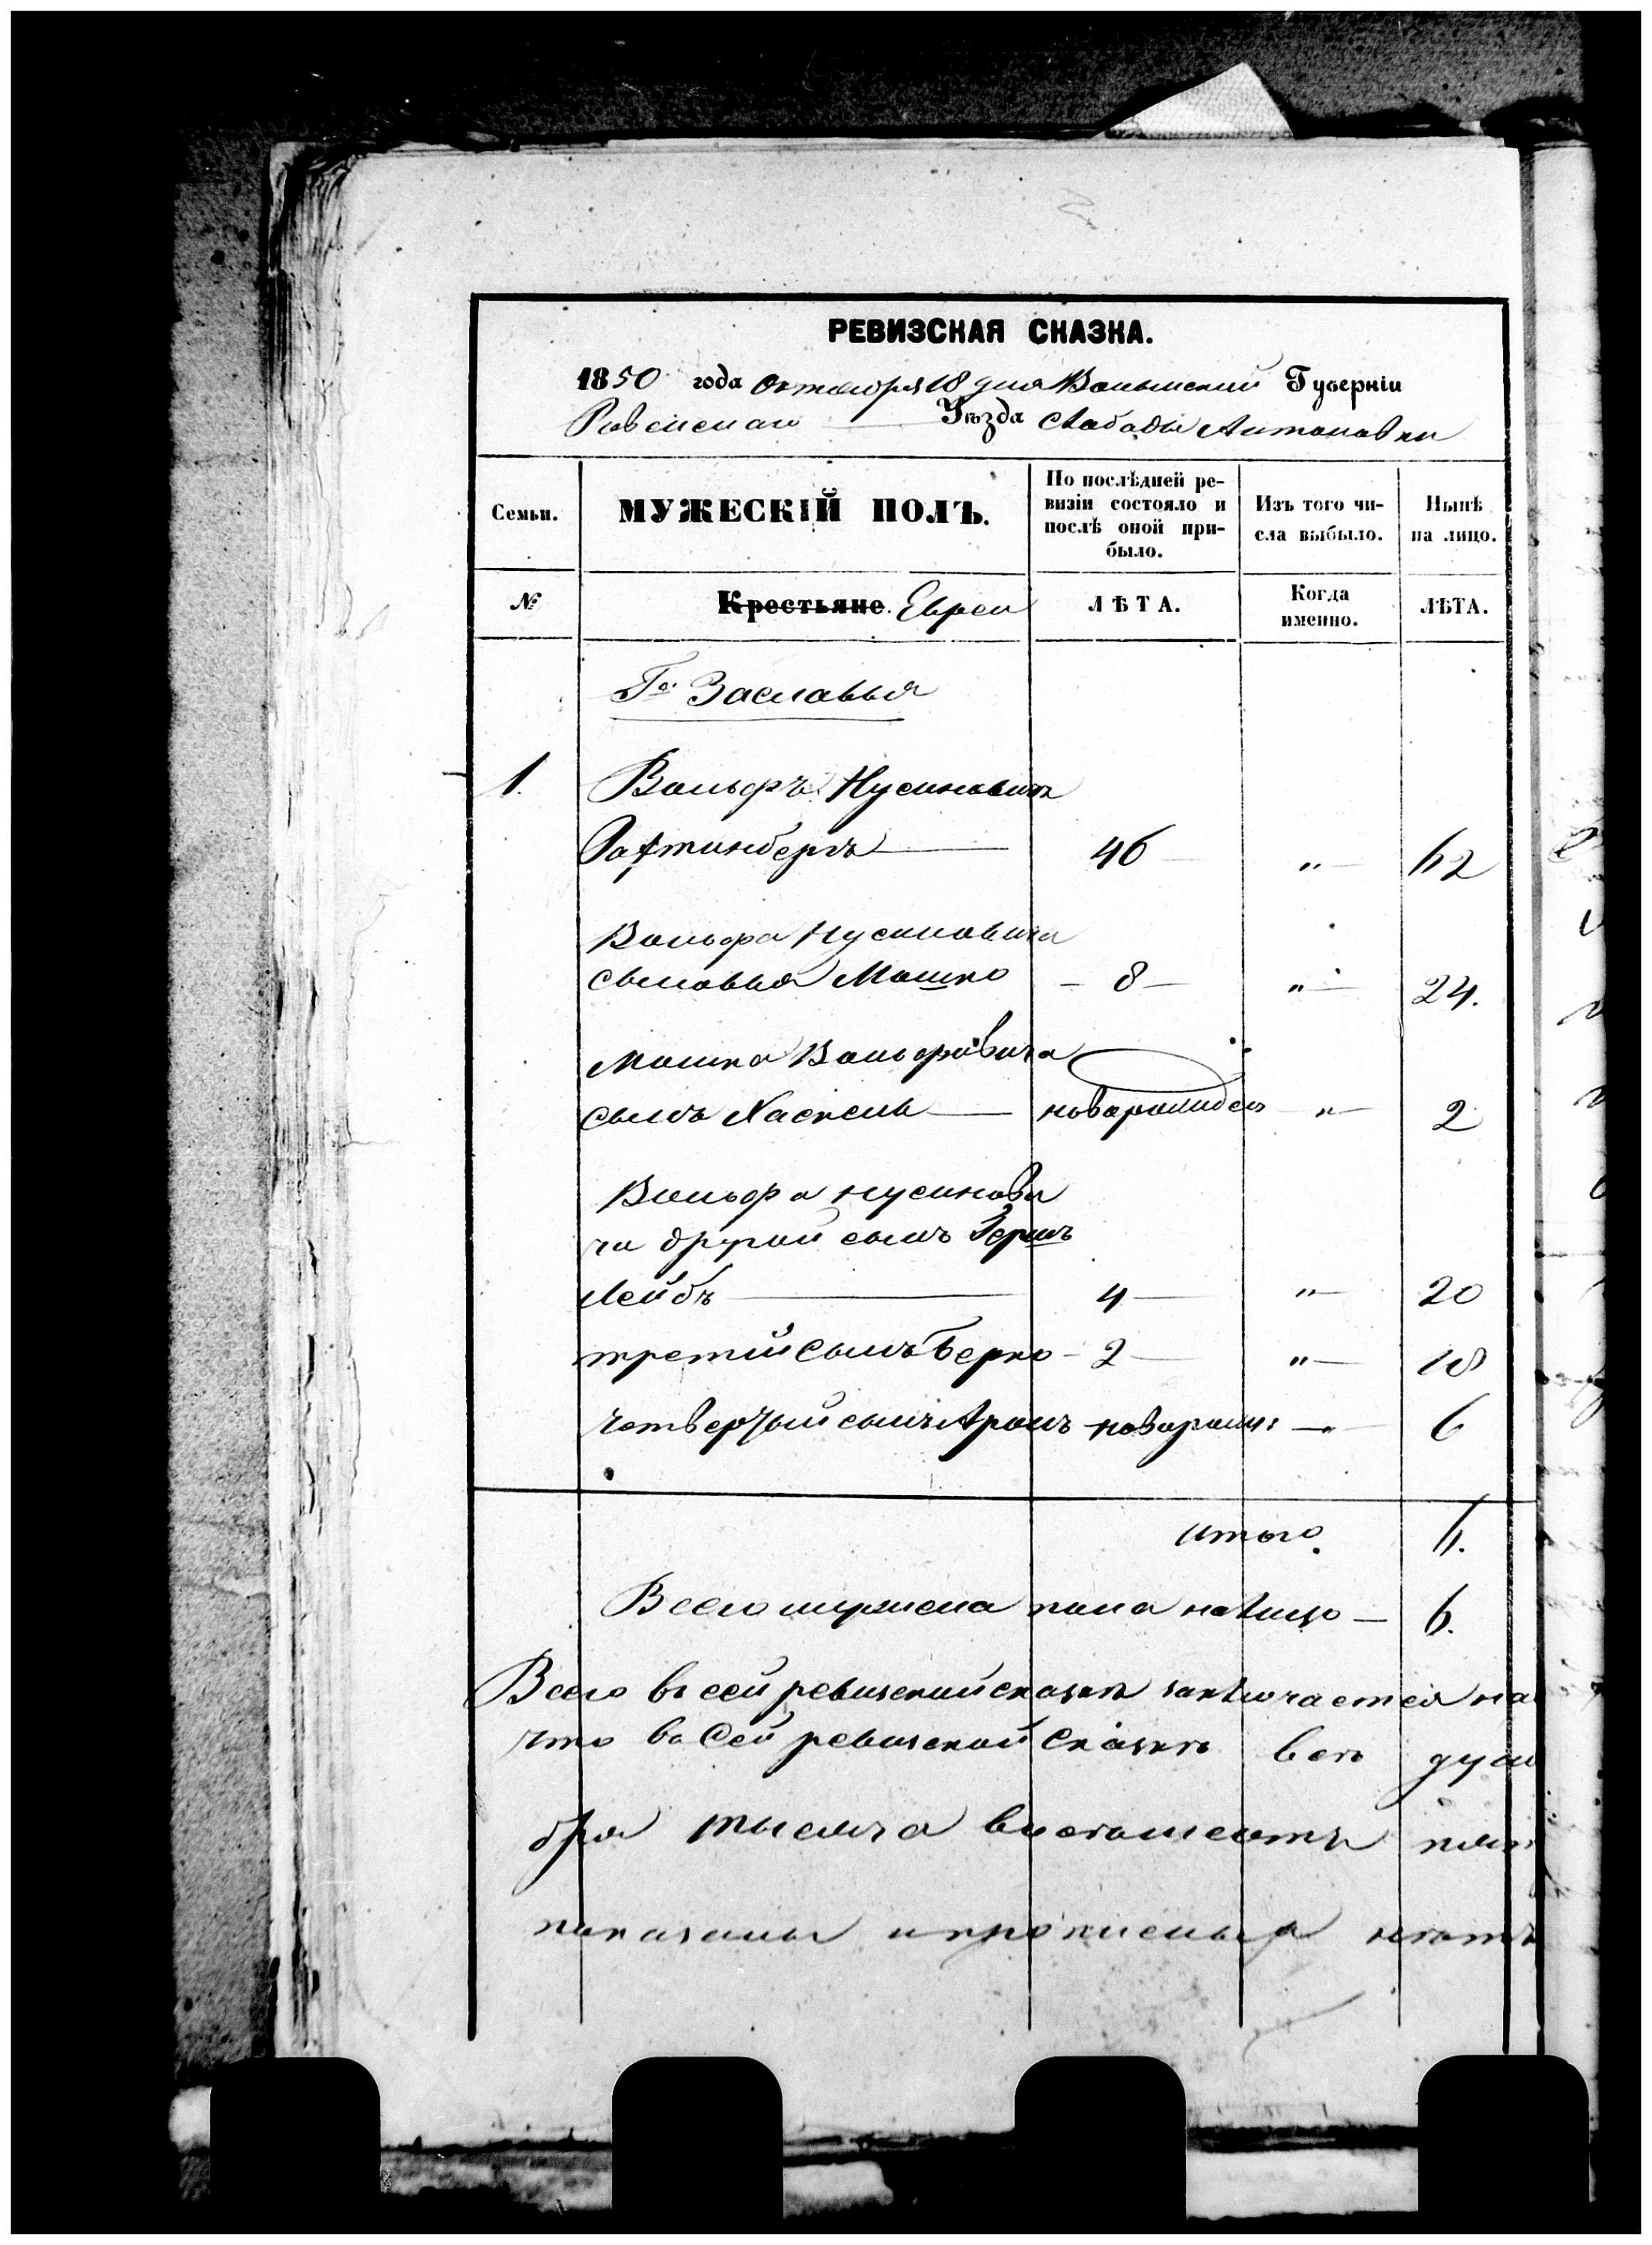 РЕВИЗСКАЯ СКАЗКА.
1850 года октября 18 дня Волынской Губерніи
Ровенскаго Уѣзда слабоды Антоновки
Семьи.
МУЖЕСКІЙ ПОЛЪ.
По послѣдней ре-
визіи состояло и
послѣ оной при-
было.
Изъ того чи-
сла выбыло.
Нынѣ
на лицо.
№
Крестьяне. Евреи
ЛѢТА.
Когда
именно.
ЛѢТА.
Го. Заславья
1. Вольфъ Нусиновичъ
46 „ 62
Вольфа Нусиновича
сыновья Мошко — 8 — „ 24.
Мошка Вольфовича
сынъ Хаскель — новорожден „ 2
Вольфа Нусинови
ча другой сынъ Герш
Лейбъ — 4 — „ 20
третій сынъ Берко — 2 — „ 18
четвертый сынъ Аронъ новорожд 6
итого. 6.
Всего мужеска пола на лицо — 6.
Всего въ сей ревизской сказкѣ заключается на
что въ сей ревизской сказкѣ всѣ души
бря тысяча восемьсотъ пят
показаны и прописныхъ нѣтъ